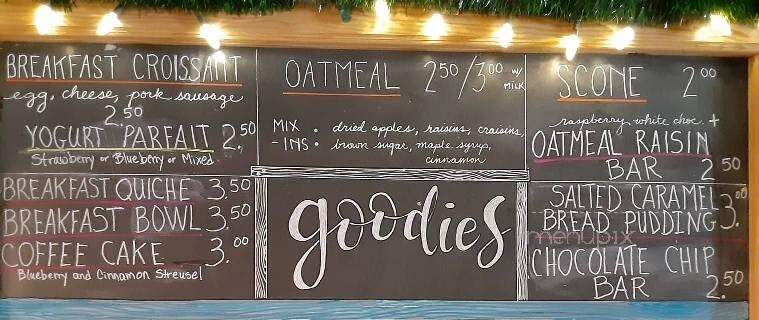 BREAKFAST CROISSANT
egg, cheese, pork sausage
2.50
YOGURT PARFAIT 2.50
Strawberry or Blueberry or Mixed
BREAKFAST QUICHE 3.50
BREAKFAST BOWL 3.50
COFFEE CAKE 3.00
Blueberry and Cinnamon Streusel
OATMEAL 2.50/3.00 w/ MILK
MIX • dried apples, raisins, craisins,
-INS • brown sugar, maple syrup,
cinnamon
goodies
SCONE 2.00
raspberry white choc. +
OATMEAL RAISIN
BAR 2.50
SALTED CARAMEL
BREAD PUDDING 3.00
menupix
CHOCOLATE CHIP
BAR 2.50